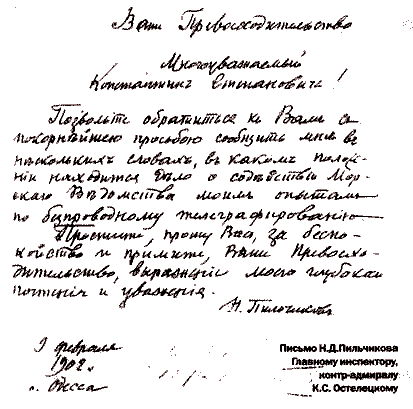 Ваше Превосходительство
Многоуважаемый
Константинъ Степановичъ!
Позвольте обратиться къ Вамъ съ
покорнѣйшею просьбою сообщить мнѣ въ
нѣсколькихъ словахъ, въ какомъ полож-
нiи находится дѣло о содѣйствiи Мор-
скаго Вѣдомства моимъ опытамъ
по безпроводному телеграфированiю
Простите, прошу Васъ, за безпо-
койство и примите, Ваше Превосхо-
дительство, выраженiе моего глубокаго
почтенiя и уваженiя.
Н. Пильчиковъ
9 февраля
1902 г.
г. Одесса
Письмо Н.Д.Пильчикова
Главному инспектору,
контр-адмиралу
К.С. Остелецкому